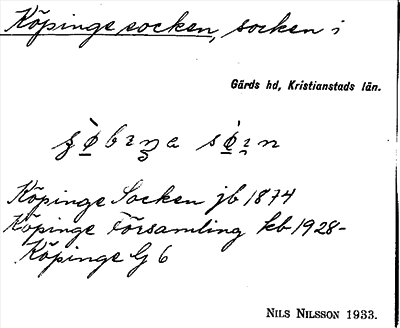 Köpinge socken, socken i
Gärds hd, Kristianstads län.
Köpinge Socken jb 1874
Köpinge Församling kb 1928-
Köpinge Gj 6
NILS NILSSON 1933.